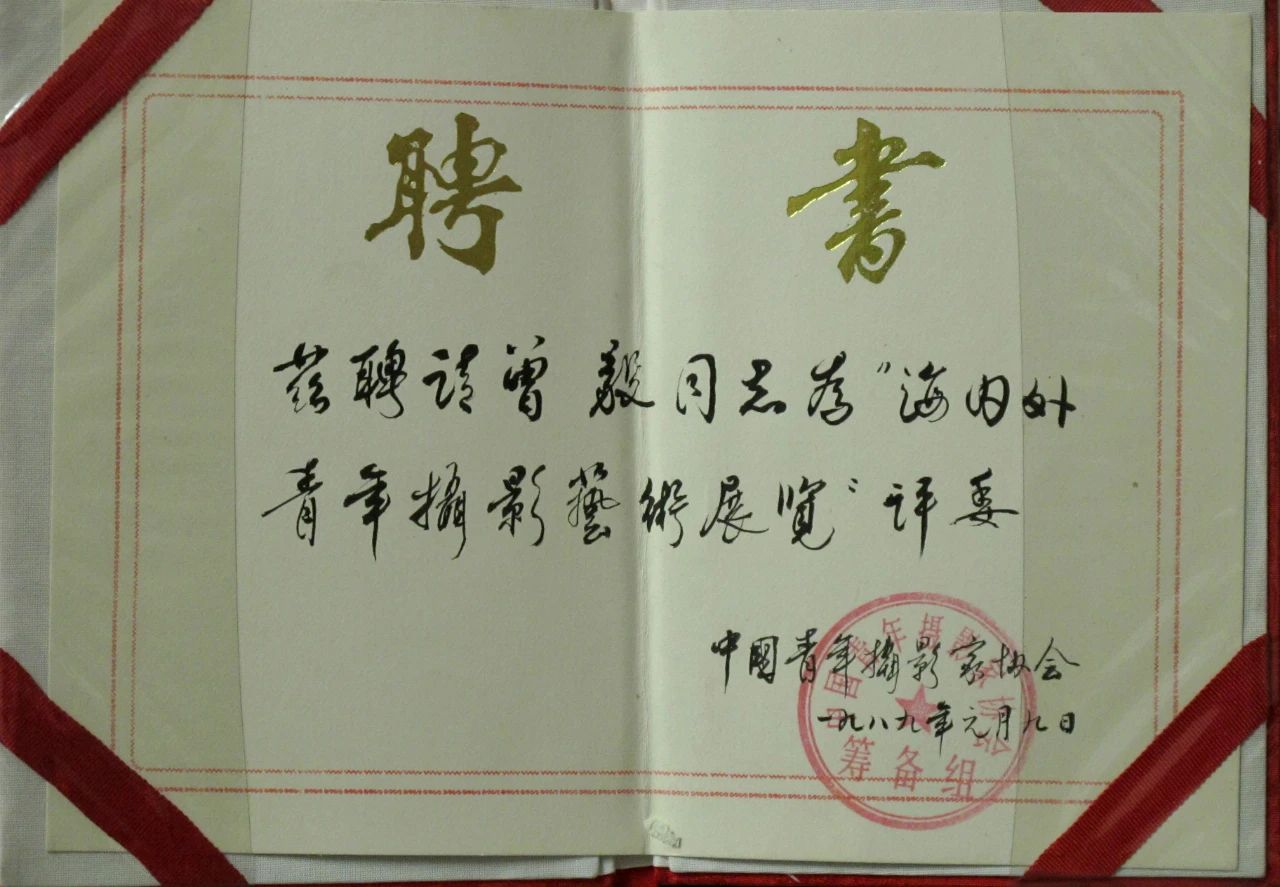 聘 書
茲聘请曾毅同志为“海内外
青年攝影藝術展览”评委
中國青年攝影家协会
一九八九年元月九日
中国青年摄影家协会
筹备组